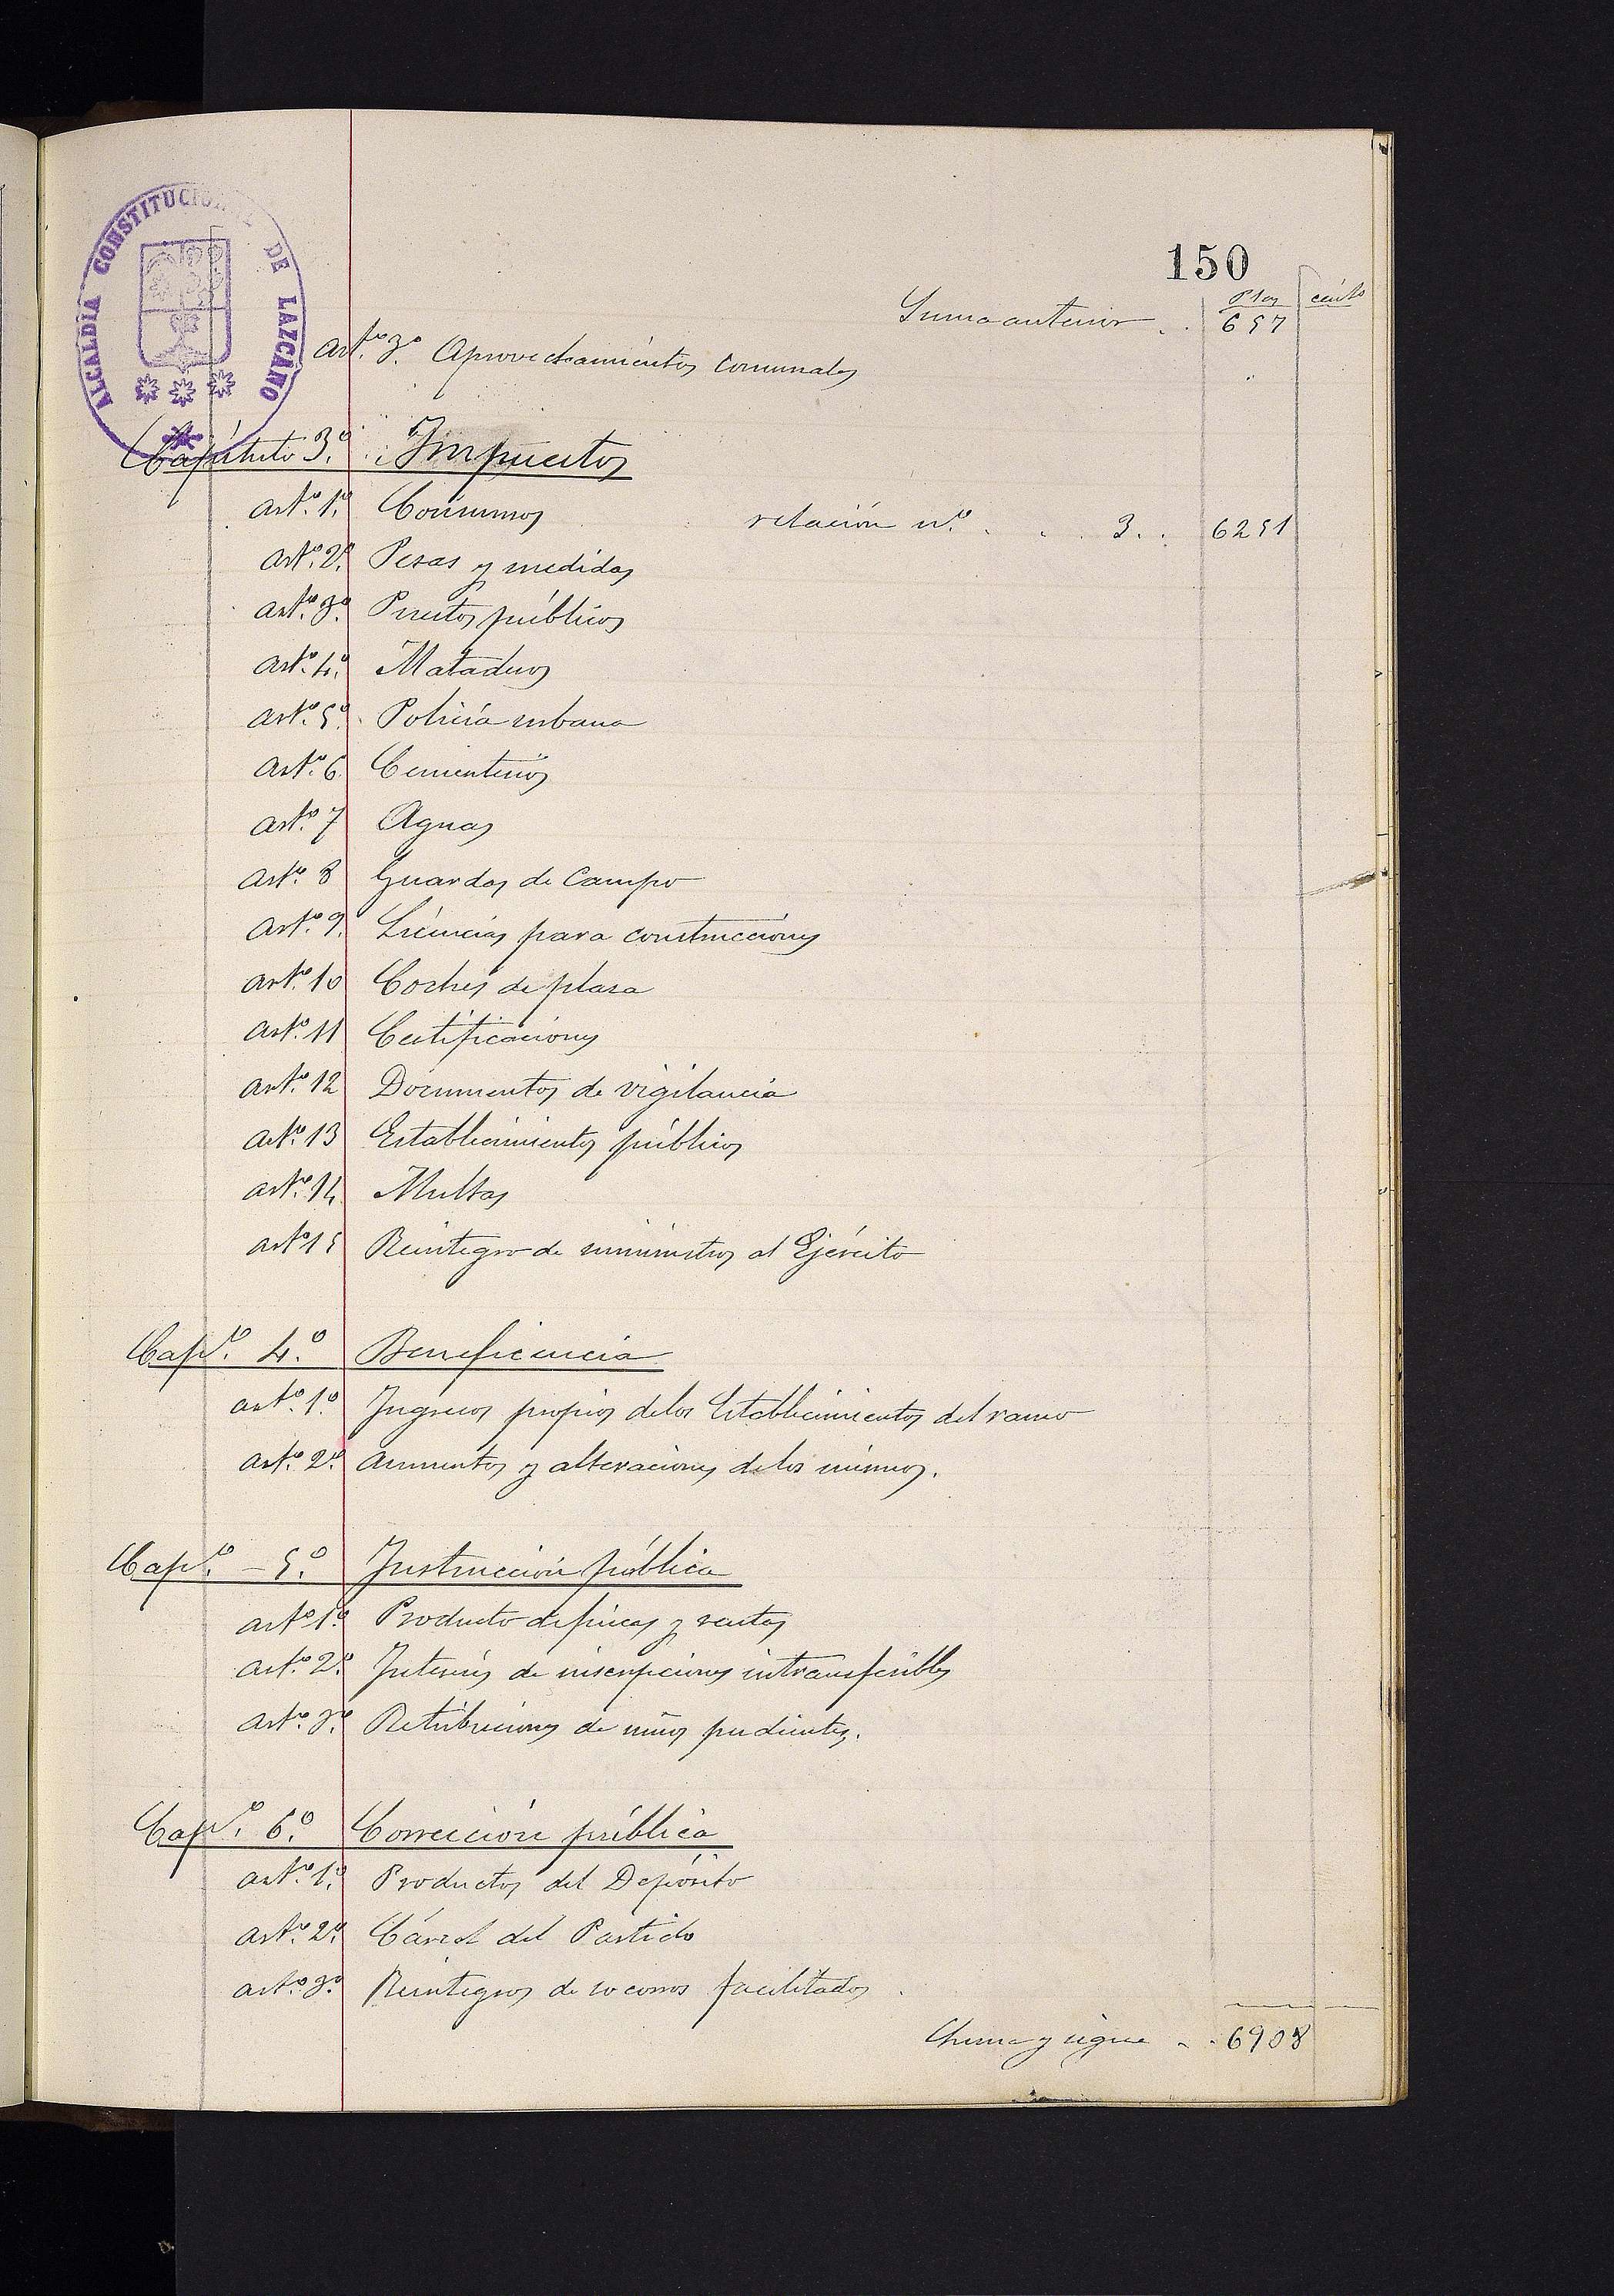 ALCALDIA CONSTITUCIONAL DE LAZCANO
150
Ptas cénts
Suma anterior . . 657
art.º 3.º Aprovechamientos comunales
Capítulo 3.º Impuestos
art.º 1.º Consumos relación n.º . . . 3 . . 6251
art.º 2.º Pesas y medidas
art.º 3.º Puestos públicos
art.º 4.º Mataderos
art.º 5.º Policía urbana
art.º 6 Cementerios
art.º 7 Aguas
art.º 8 Guardas de Campo
art.º 9. Licencias para construcciones
art.º 10 Coches de plasa
art.º 11 Certificaciones
art.º 12 Documentos de vigilancia
art.º 13 Establecimientos públicos
art.º 14 Multas
art.º 15 Reintegro de suministros al Ejército
Cap.º 4.º Beneficencia
art.º 1.º Ingresos propios de los Establecimientos del ramo
art.º 2.º Aumentos y alteraciones de los mismos.
Cap.º - 5.º Instrucción pública
art.º 1.º Producto de fincas y rentas
art.º 2.º Interés de inscripciones intransferibles
art.º 3.º Retribuciones de niños pudientes.
Cap.º 6.º Corrección pública
art.º 1.º Productos del Depósito
art.º 2.º Cárcel del Partido
art.º 3.º Reintegros de socorros facilitados .
Suma y sigue . . 6908